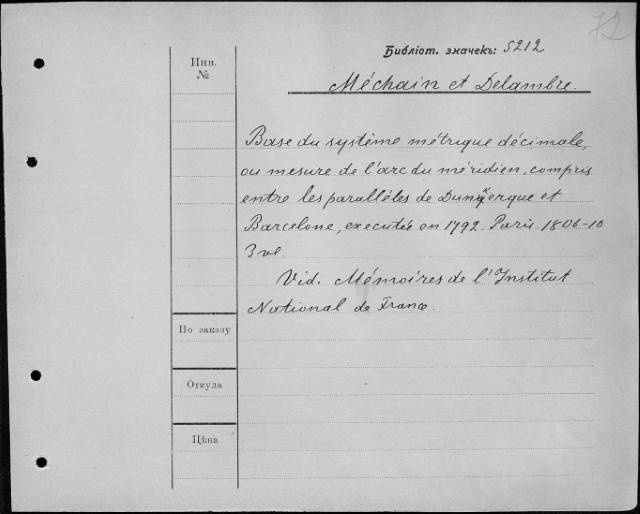 72
Библіот. значекъ: S212
Инв.
№
Méchain et Delambre.
Base du système métrique décimale,
ou mesure de l'arc du méridien, compris
entre les parallèles de Dunkerque et
Barcelone, executée en 1792. Paris 1806-10
3 vol.
Vid. Mémoires de l'Institut
National de France.
По заказу
Откуда
Цѣна